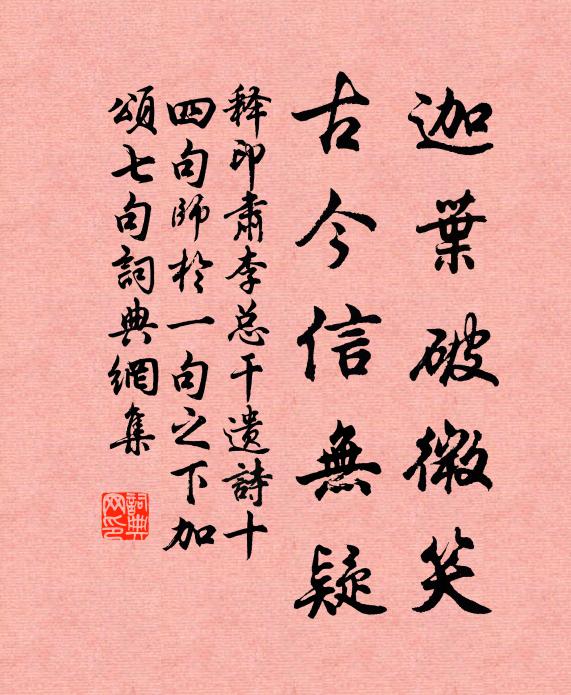 迦葉破微笑
古今信無疑
释印肅李总干遗詩十
四句師於一句之下加
頌七句詞典網集
詞典网印